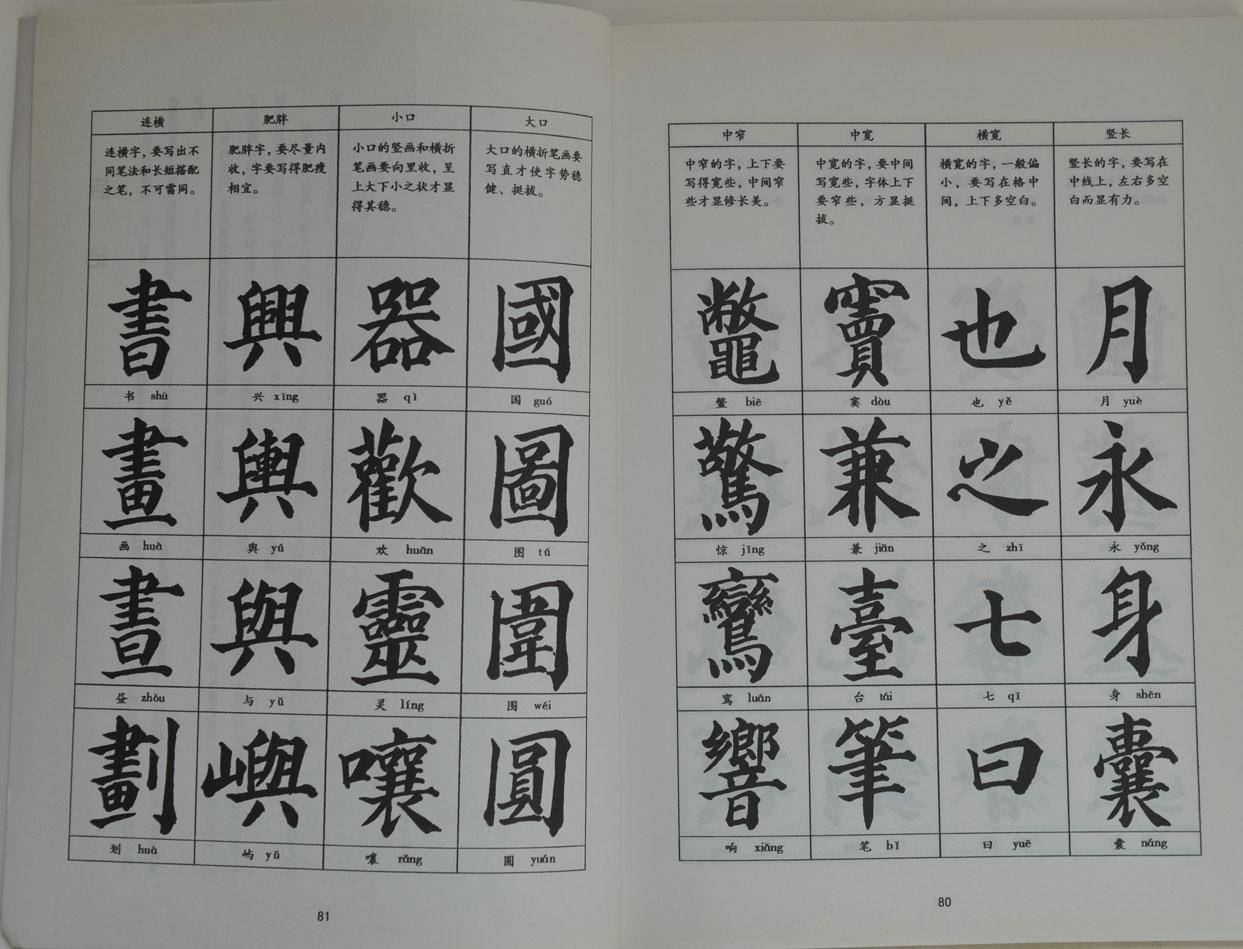 竖长
竖长的字，要写在
中线上，左右多空
白而显有力。
月
月 yuè
永
永 yǒng
身
身 shēn
囊
囊 náng
横宽
横宽的字，一般偏
小，要写在格中
间，上下多空白。
也
也 yě
之
之 zhī
七
七 qī
曰
曰 yuē
中宽
中宽的字，要中间
写宽些，字体上下
要窄些，方显挺
拔。
竇
窦 dòu
兼
兼 jiān
臺
台 tái
筆
笔 bǐ
中窄
中窄的字，上下要
写得宽些，中间窄
些才显修长美。
鼈
鳖 biē
驚
惊 jīng
鸞
鸾 luán
響
响 xiǎng
80
大口
大口的横折笔画要
写直才使字势稳
健、挺拔。
國
国 guó
圖
图 tú
圍
围 wéi
圓
圆 yuán
小口
小口的竖画和横折
笔画要向里收，呈
上大下小之状才显
得其稳。
器
器 qì
歡
欢 huān
靈
灵 líng
嚷
嚷 rǎng
肥胖
肥胖字，要尽量内
收，字要写得肥瘦
相宜。
興
兴 xīng
輿
舆 yú
與
与 yǔ
嶼
屿 yǔ
连横
连横字，要写出不
同笔法和长短搭配
之笔，不可雷同。
書
书 shū
畫
画 huà
晝
昼 zhòu
劃
划 huà
81